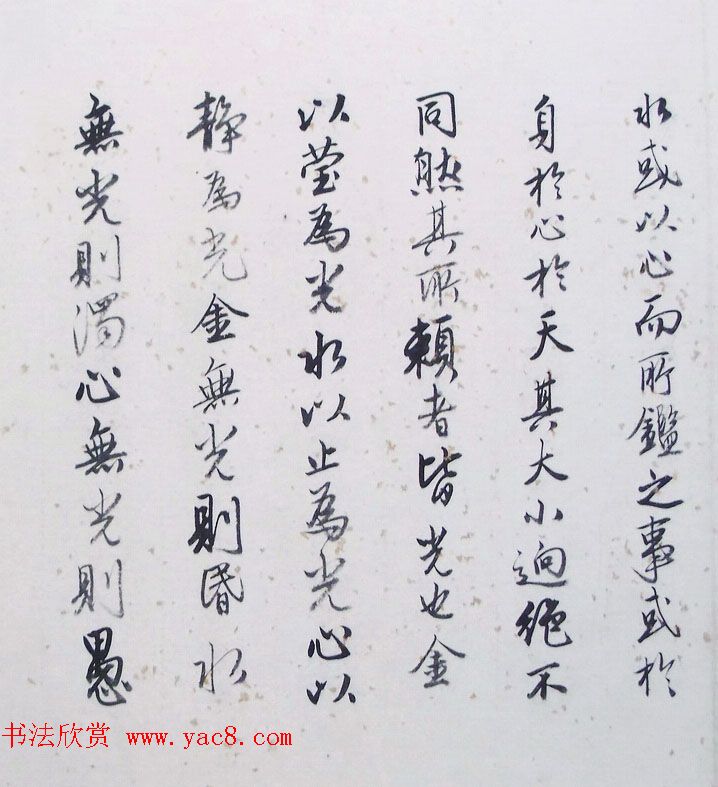 水或以心而所鑑之事或於
身於心於天其大小迥絶不
同然其所頼者皆光也金
以莹為光水以止為光心以
静為光金無光則昏水
無光則濁心無光則愚
书法欣赏 www.yac8.com